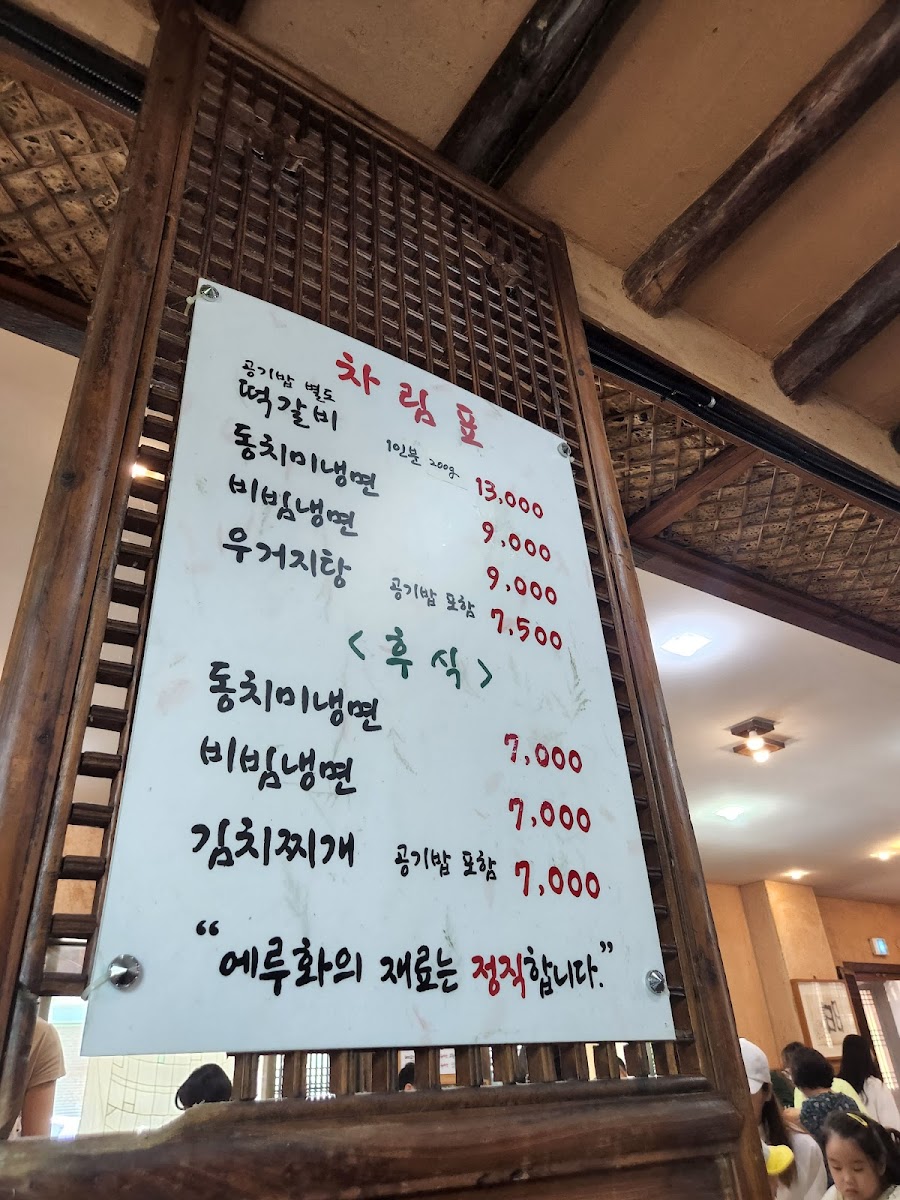 차림표
공기밥 별도
떡갈비 1인분 200g 13,000
동치미냉면 9,000
비빔냉면 9,000
우거지탕 공기밥 포함 7,500
<후식>
동치미냉면 7,000
비빔냉면 7,000
김치찌개 공기밥 포함 7,000
“에루화의 재료는 정직합니다.”